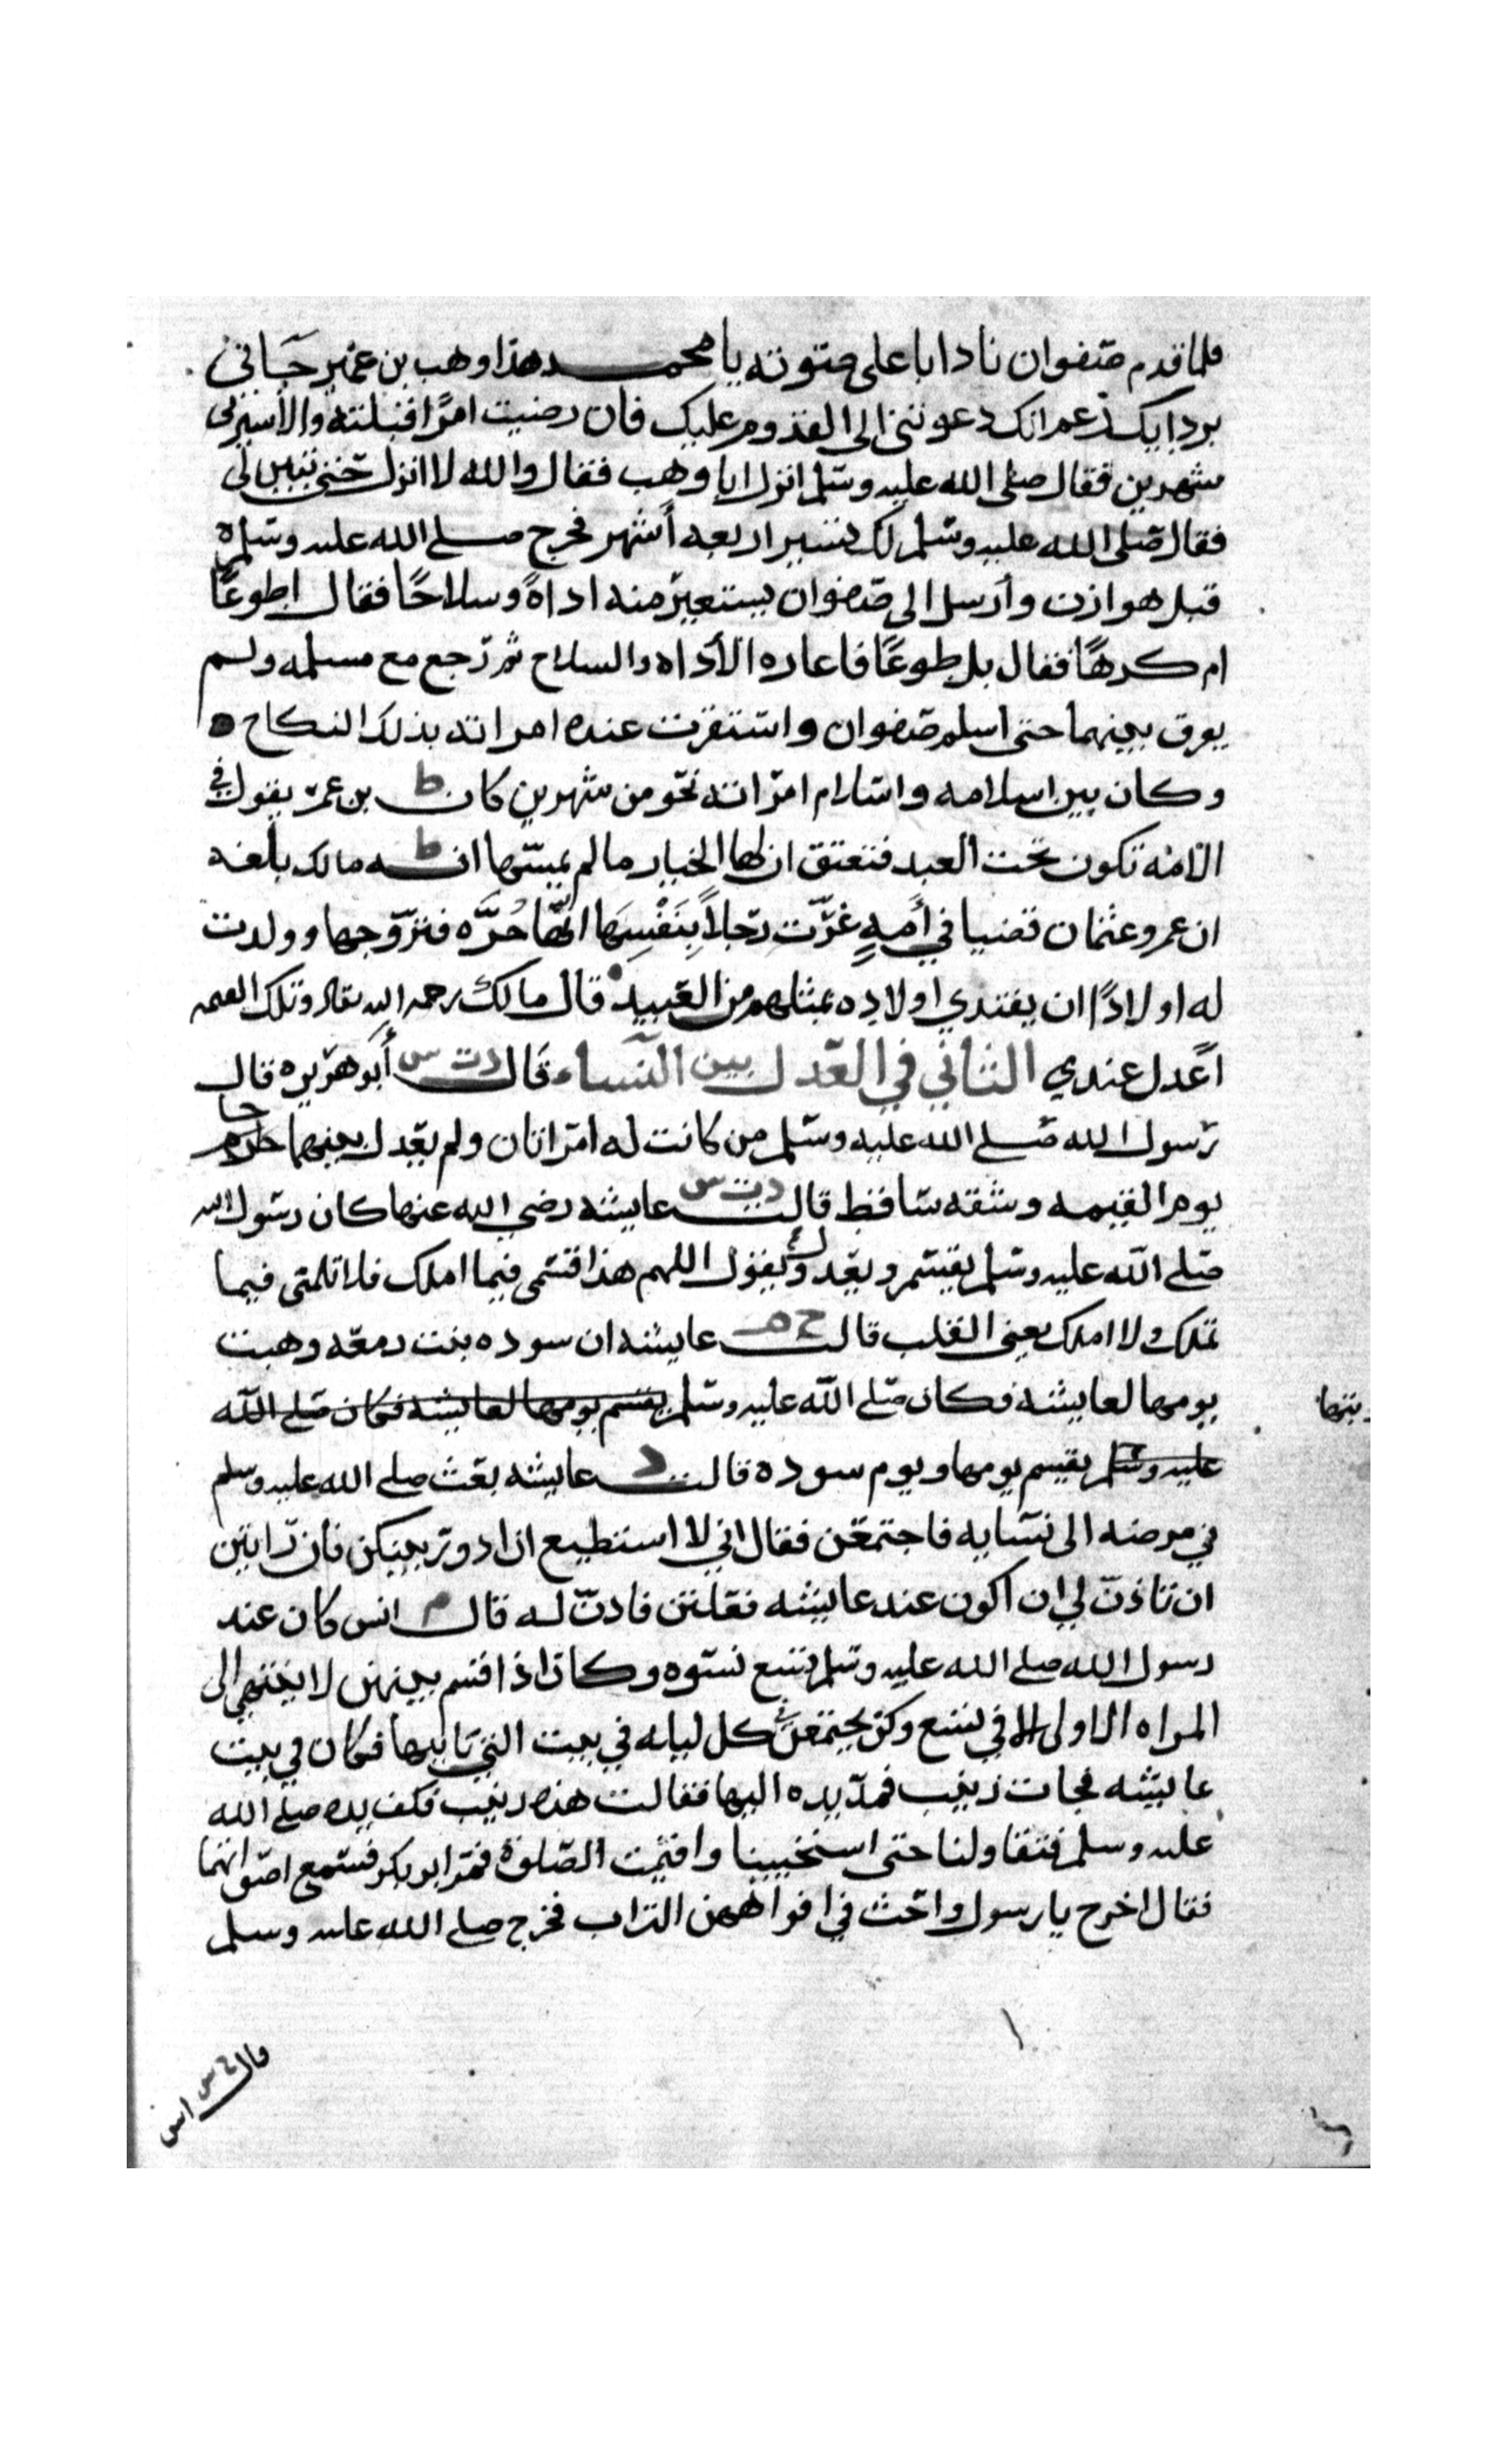 فلما قدم صفوان ناداه باعلى صوته يا محمد هذا وهب بن عمير جاني
بردايك زعم انك دعوتني الى القدوم عليك فان رضيت امرًا قبلته والا سيرني
شهرين فقال صلى الله عليه وسلم انزل ابا وهب فقال والله لا انزل حتى تبين لي
فقال صلى الله عليه وسلم لك تسير اربعه أشهر فخرج صلى الله عليه وسلم
قبل هوازن وأرسل الى صفوان يستعير منه اداةً وسلاحًا فقال اطوعًا
ام كرهًا فقال بل طوعًا فاعاره الأداه والسلاح ثم رجع مع مسلمه ولم
يعرق بينهما حتى اسلم صفوان واستقرت عنده امراته بذلك النكاح
وكان بين اسلامه واسلام امراته نحو من شهرين كان ط بن عمر يقول في
الامه تكون تحت العبد فتعتق ان لها الخيار ما لم يمسها ط انه مالك بلغه
ان عمر وعثمان قضيا في أمةٍ غرّت رجلاً بنَفْسِهَا انّها حُرَّه فتزوجها وولدت
له اولادًا ان يفتدي اولاده بمثلهم من العبيد قال مالك رحمه الله تعالى وتلك القيمه
أعدل عندي الثاني في العدل بين النساء قال د ت س أبو هريره قال
رسول الله صلى الله عليه وسلم من كانت له امراتان ولم يعدل بينهما جا
يوم القيمه وشقه ساقط قالت د ت س عايشه رضي الله عنها كان رسول الله
صلى الله عليه وسلم يقسم ويعدل ويقول اللهم هذا قسمى فيما املك فلا تلمنى فيما
تملك ولا املك يعنى القلب قالت خ م عايشه ان سوده بنت دمعه وهبت
يومها لعايشه فكان صلى الله عليه وسلم يقسم يومها لعايشه فكان صلى الله
عليه وسلم يقسم يومها ويوم سوده قالت د عايشه بعث صلى الله عليه وسلم
في مرضه الى نسايه فاجتمعن فقال اني لا استطيع ان ادور بينكن فان رايتن
ان تاذن لي ان اكون عند عايشه فعلتن فاذن له قال م انس كان عند
رسول الله صلى الله عليه وسلم تسع نسوه وكان اذا قسم بينهن لا ينتهي الى
المراه الاولى الا في تسع وكن يجتمعن كل ليله في بيت التي ياتيها فكان في بيت
عايشه فجات زينب فمد يده اليها فقالت هذه زينب فكف يده صلى الله
عليه وسلم فتقاولتا حتى استخبتا واقيمت الصلوة فمر ابو بكر فسمع اصواتهما
فقال اخرج يا رسول واحث في افواههن التراب فخرج صلى الله عليه وسلم
قال خ س انس